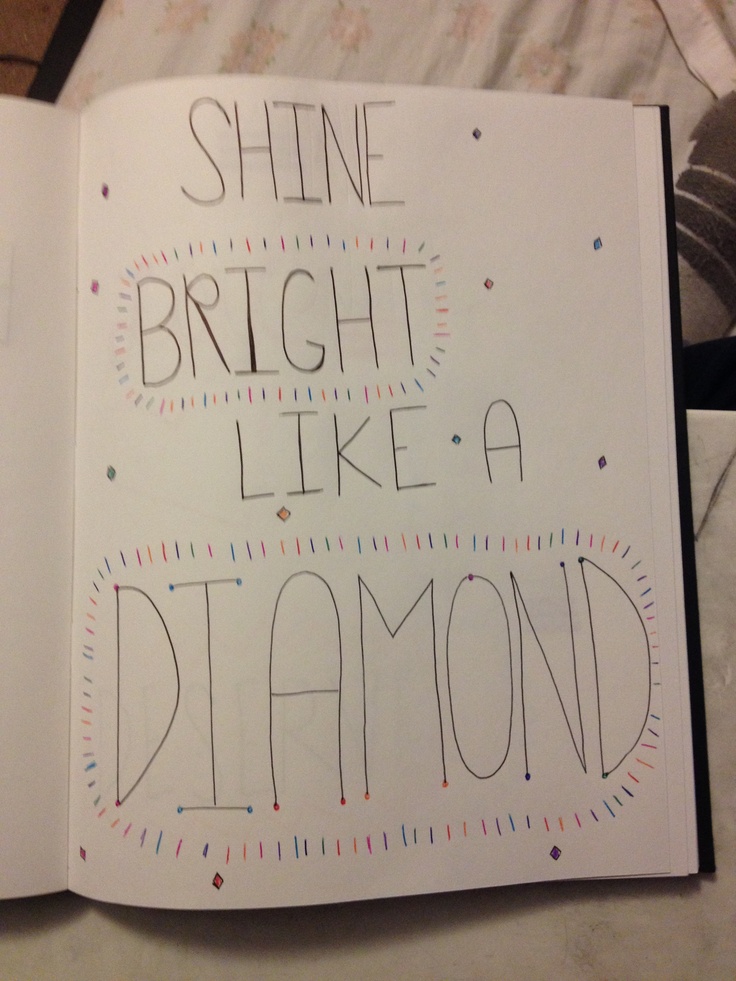 SHINE
BRIGHT
LIKE A
DIAMOND